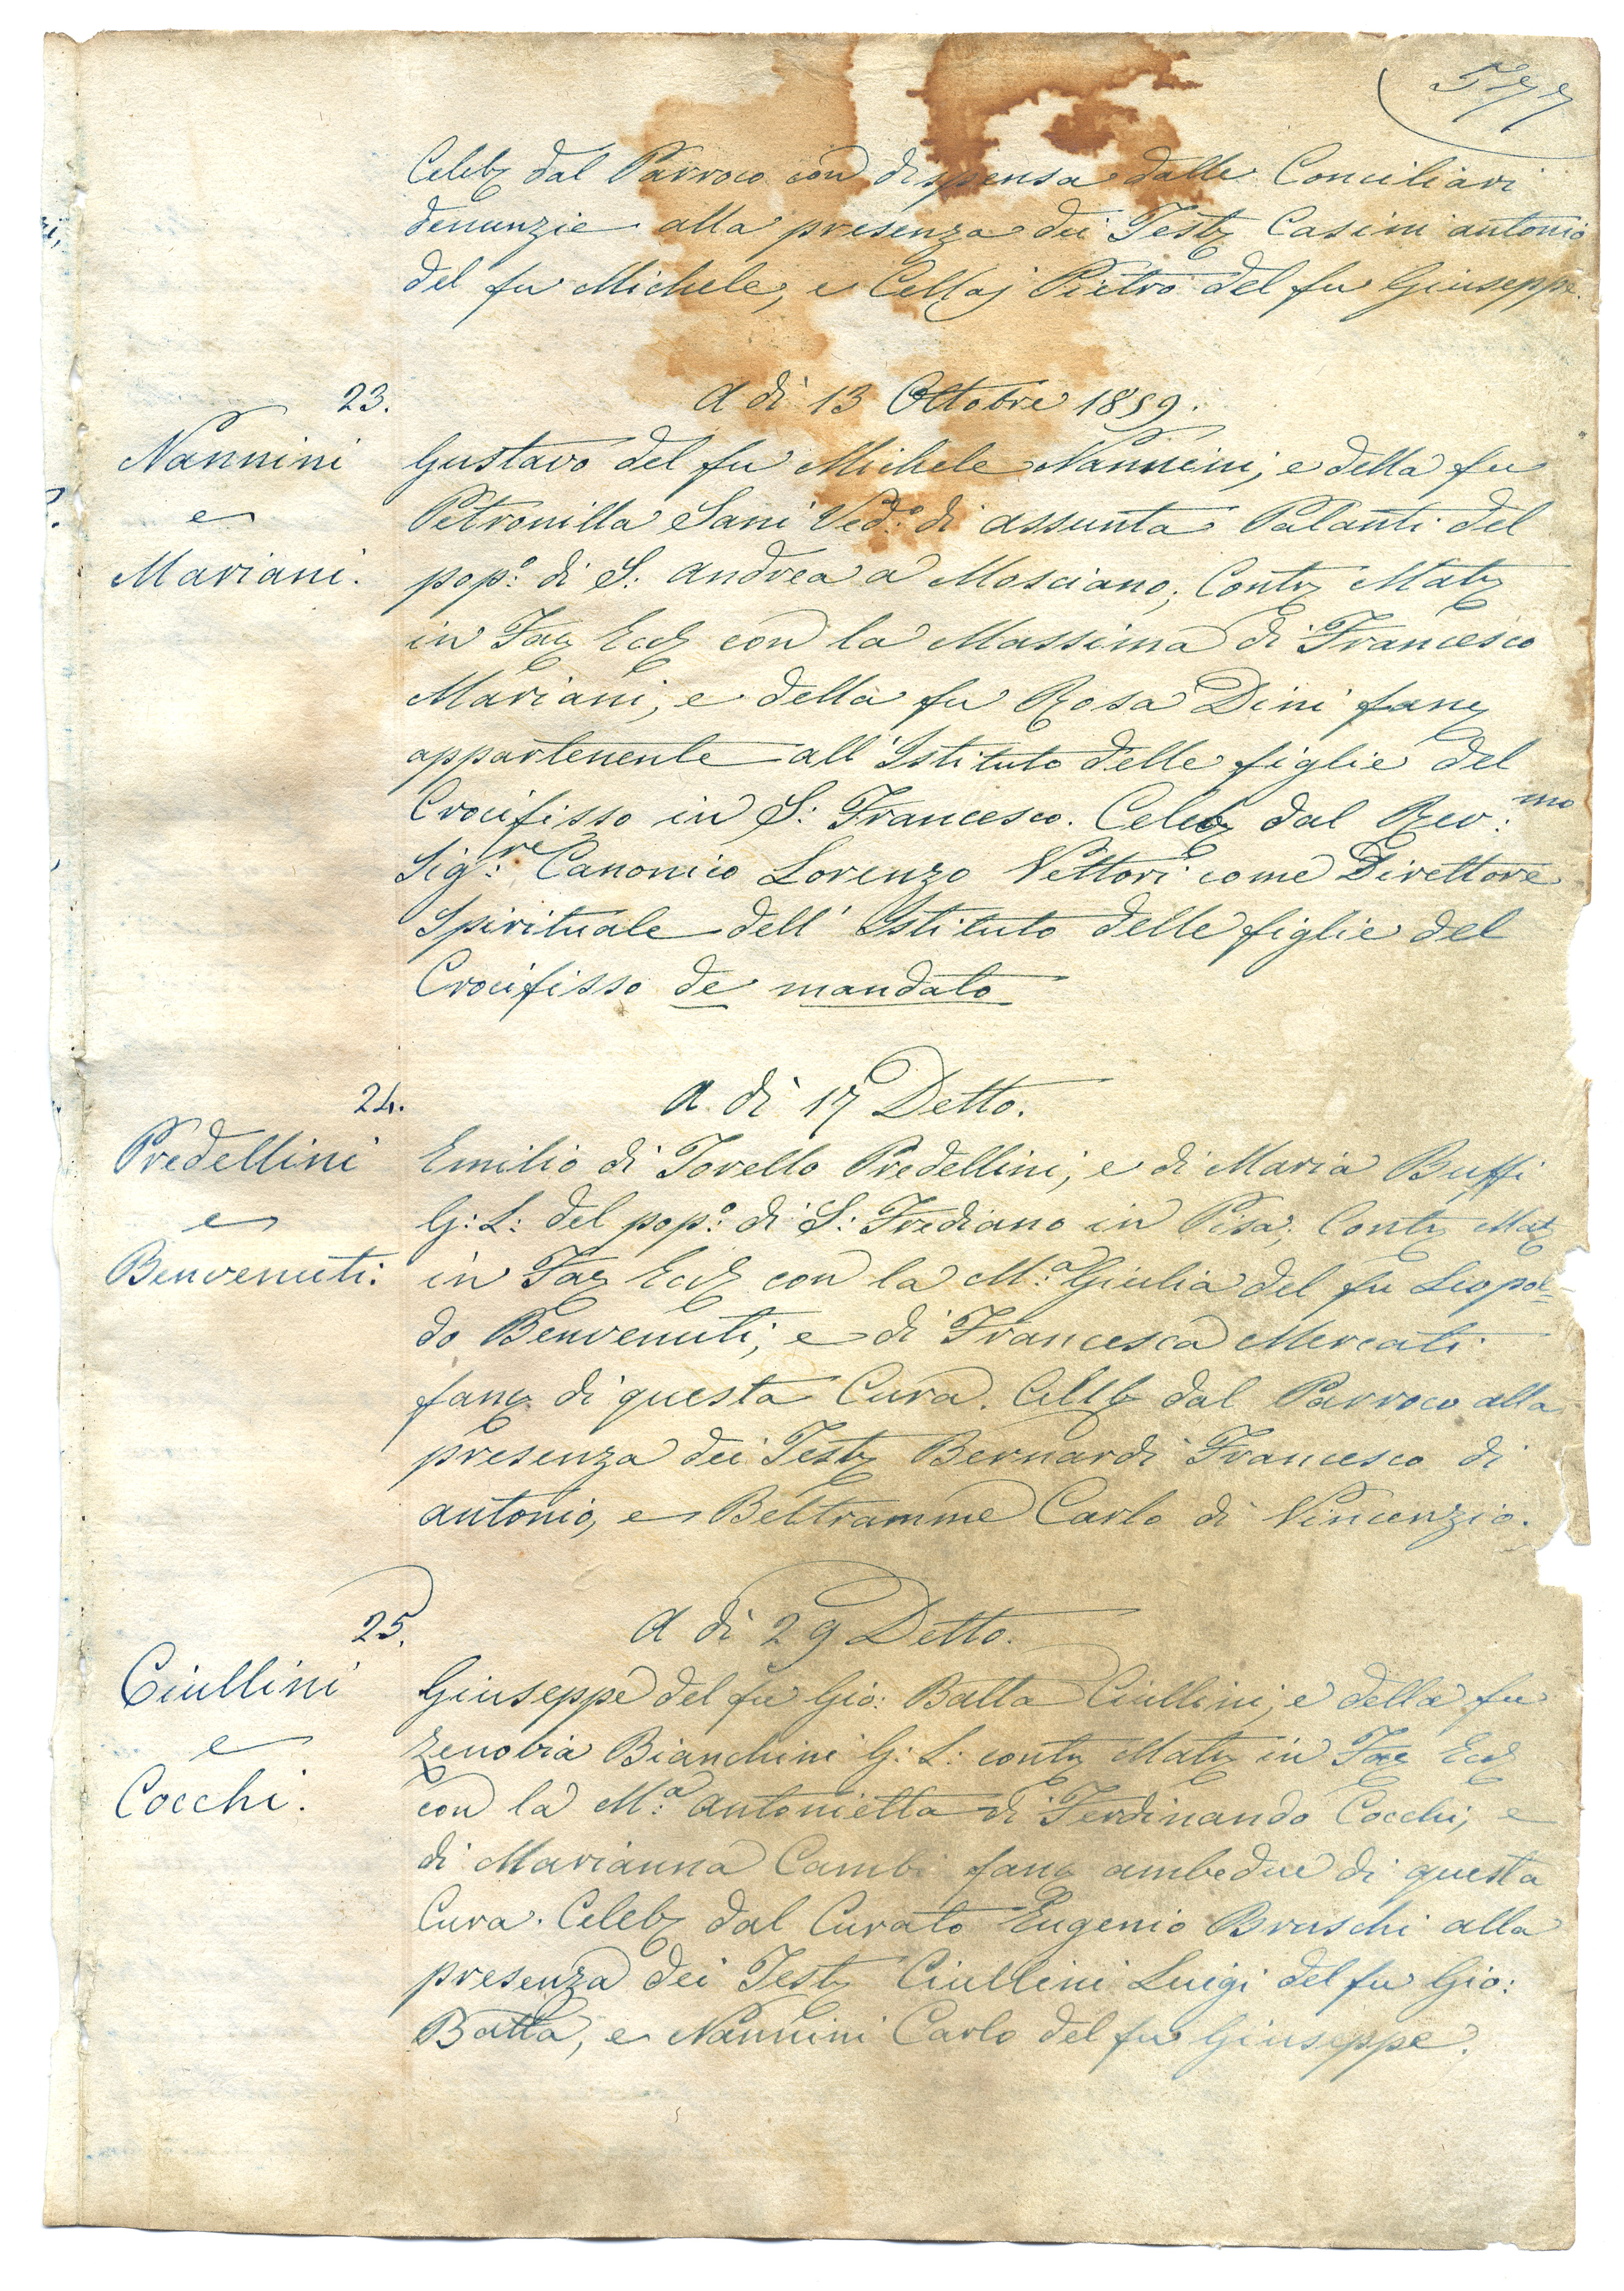 577
Celeb dal Parroco con dispensa dalle Conciliari
denunzie alla presenza dei Test Casini Antonio
del fu Michele, e Cellaj Pietro del fu Giuseppe.
23. A dì 13 Ottobre 1859.
Nannini
e
Mariani.
Gustavo del fu Michele Nannini, e della fu
Petronilla Sani Ved.o di Assunta Palanti del
pop.o di S: Andrea a Mosciano; Cont Mat
in Fac Eccl con la Massima di Francesco
Mariani, e della fu Rosa Dini fanc
appartenente all'Istituto delle figlie del
Crocifisso in S: Francesco. Celeb dal Rev:mo
Sig:re Canonico Lorenzo Vettori come Direttore
Spirituale dell'Istituto delle figlie del
Crocifisso de mandato
24. A dì 17 Detto.
Predellini
e
Benvenuti.
Emilio di Torello Predellini, e di Maria Buffi
G: L: del pop.o di S: Frediano in Pisa; Cont Mat
in Fac Eccl con la M.a Giulia del fu Leopol=
do Benvenuti, e di Francesca Mercati
fanc di questa Cura. Celeb dal Parroco alla
presenza dei Test Bernardi Francesco di
Antonio, e Beltramme Carlo di Vincenzio.
25. A dì 29 Detto.
Ciullini
e
Cocchi.
Giuseppe del fu Gio: Batta Ciullini, e della fu
Zenobia Bianchini G: L: cont Mat in Fac Eccl
con la M.a Antonietta di Ferdinando Cocchi, e
di Marianna Cambi fanc ambedue di questa
Cura. Celeb dal Curato Eugenio Bruschi alla
presenza dei Test Ciullini Luigi del fu Gio:
Batta, e Nannini Carlo del fu Giuseppe.